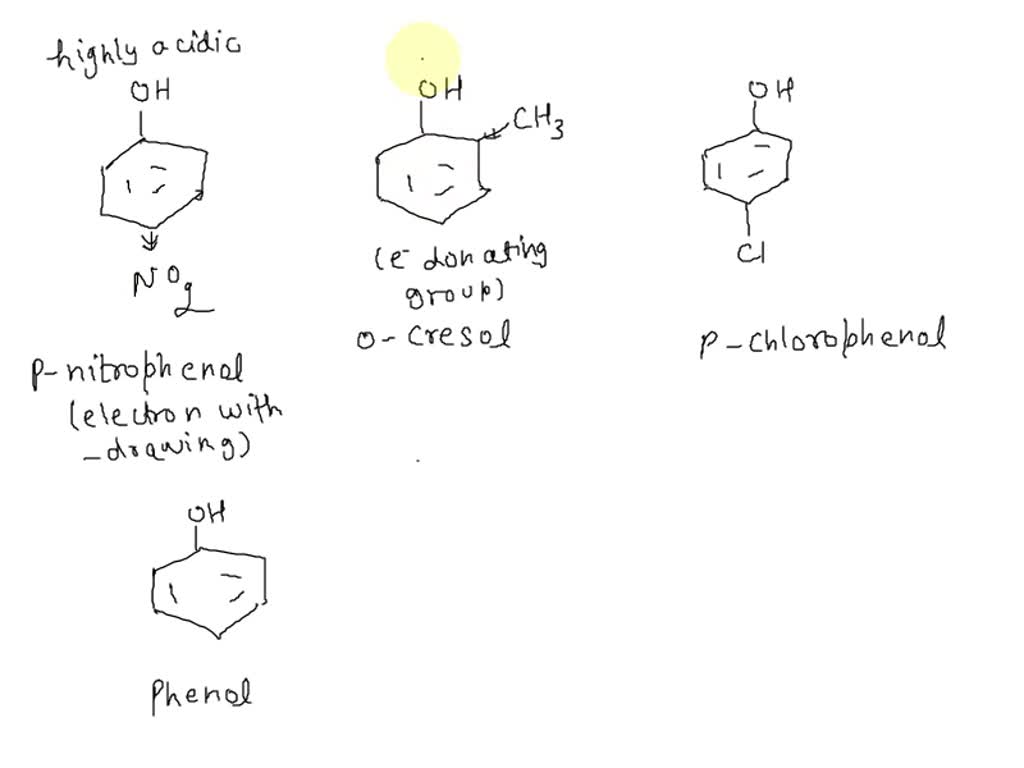 highly acidic
OH
NO2
p-nitrophenol
(electron with
-drawing)
OH
CH3
(e- donating
group)
o-cresol
OH
Cl
p-chlorophenol
OH
Phenol